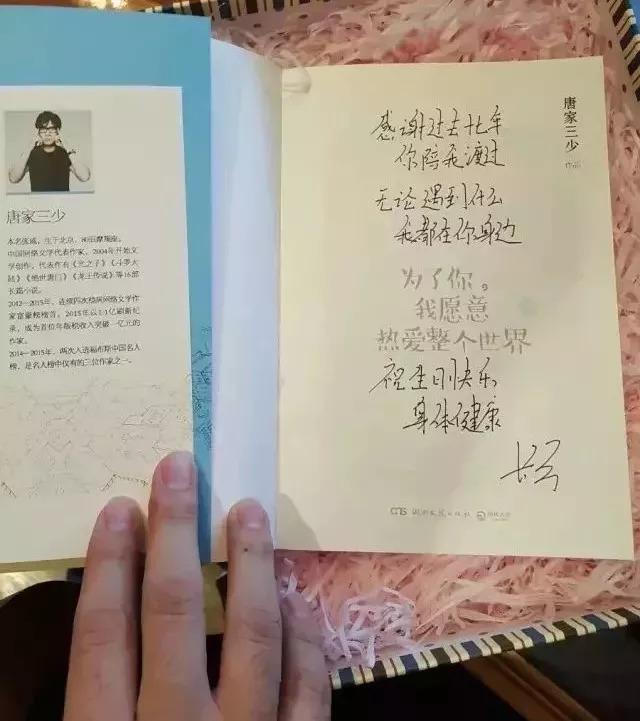 唐家三少
本名张威，生于北京，80后摩羯座。
中国网络文学代表作家，2004年开始文
学创作，代表作有《光之子》《斗罗大
陆》《绝世唐门》《龙王传说》等16部
长篇小说。
2012—2015年，连续四次稳居网络文学作
家富豪榜榜首。2015年以1.1亿刷新纪
录，成为首位年版税收入突破一亿元的
作家。
2014—2015年，两次入选福布斯中国名人
榜，是名人榜中仅有的三位作家之一。
唐家三少
作品
感谢过去十七年
你陪我渡过
无论遇到什么
我都在你身边
为了你，
我愿意
热爱整个世界
祝生日快乐
身体健康
湖南文艺出版社